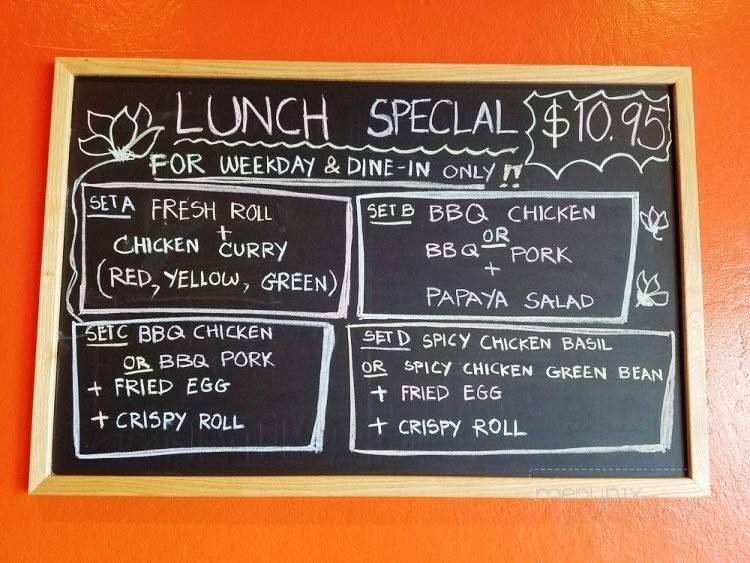 LUNCH SPECLAL $10.95
FOR WEEKDAY & DINE-IN ONLY!!
SET A FRESH ROLL
+
CHICKEN CURRY
(RED, YELLOW, GREEN)
SET B BBQ CHICKEN
OR
BBQ PORK
+
PAPAYA SALAD
SET C BBQ CHICKEN
OR BBQ PORK
+ FRIED EGG
+ CRISPY ROLL
SET D SPICY CHICKEN BASIL
OR SPICY CHICKEN GREEN BEAN
+ FRIED EGG
+ CRISPY ROLL
menupix